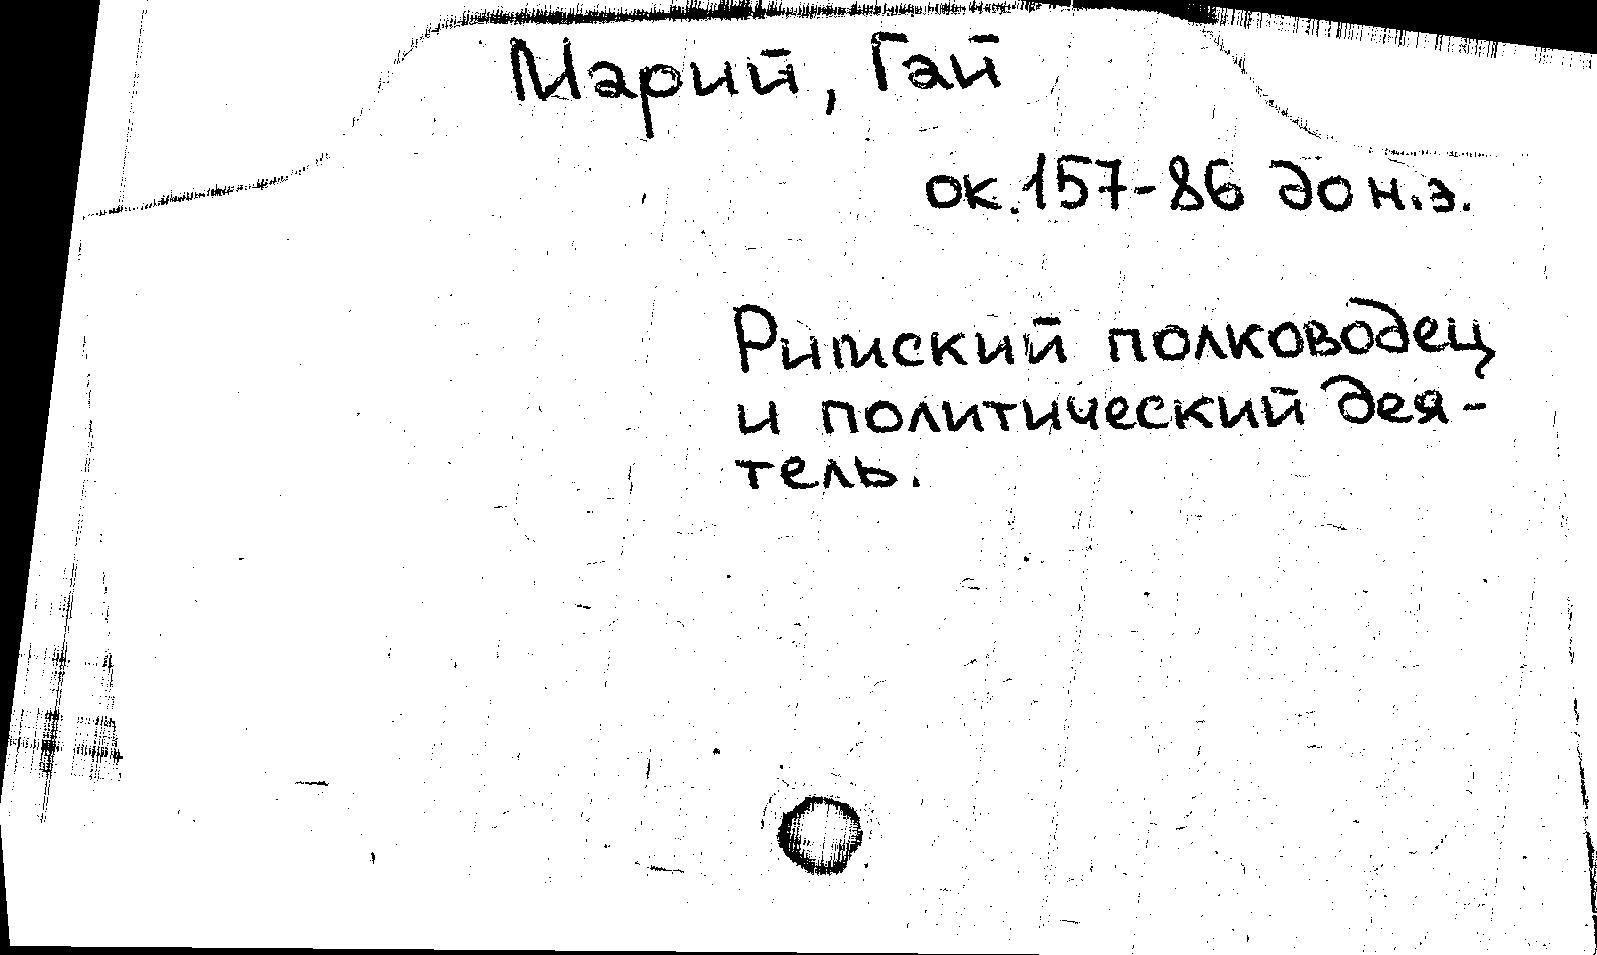 Марий, Гай
ок. 157-86 до н.э.
Римский полководец
и политический дея-
тель.